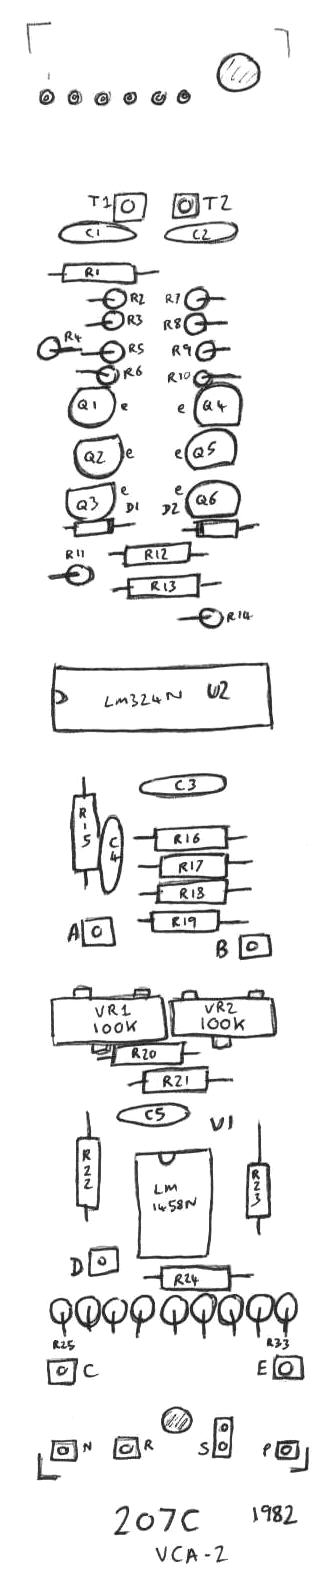 T1 T2
C1 C2
R1
R2 R7
R3 R8
R4 R5 R9
R6 R10
Q1 e e Q4
Q2 e e Q5
Q3 e e Q6
D1 D2
R11 R12
R13
R14
LM324N U2
C3
R15 C4 R16
R17
R18
R19
A B
VR1 VR2
100K 100K
R20
R21
C5 U1
R22 LM R23
1458N
D
R24
R25 R33
C E
N R S P
207C 1982
VCA-2